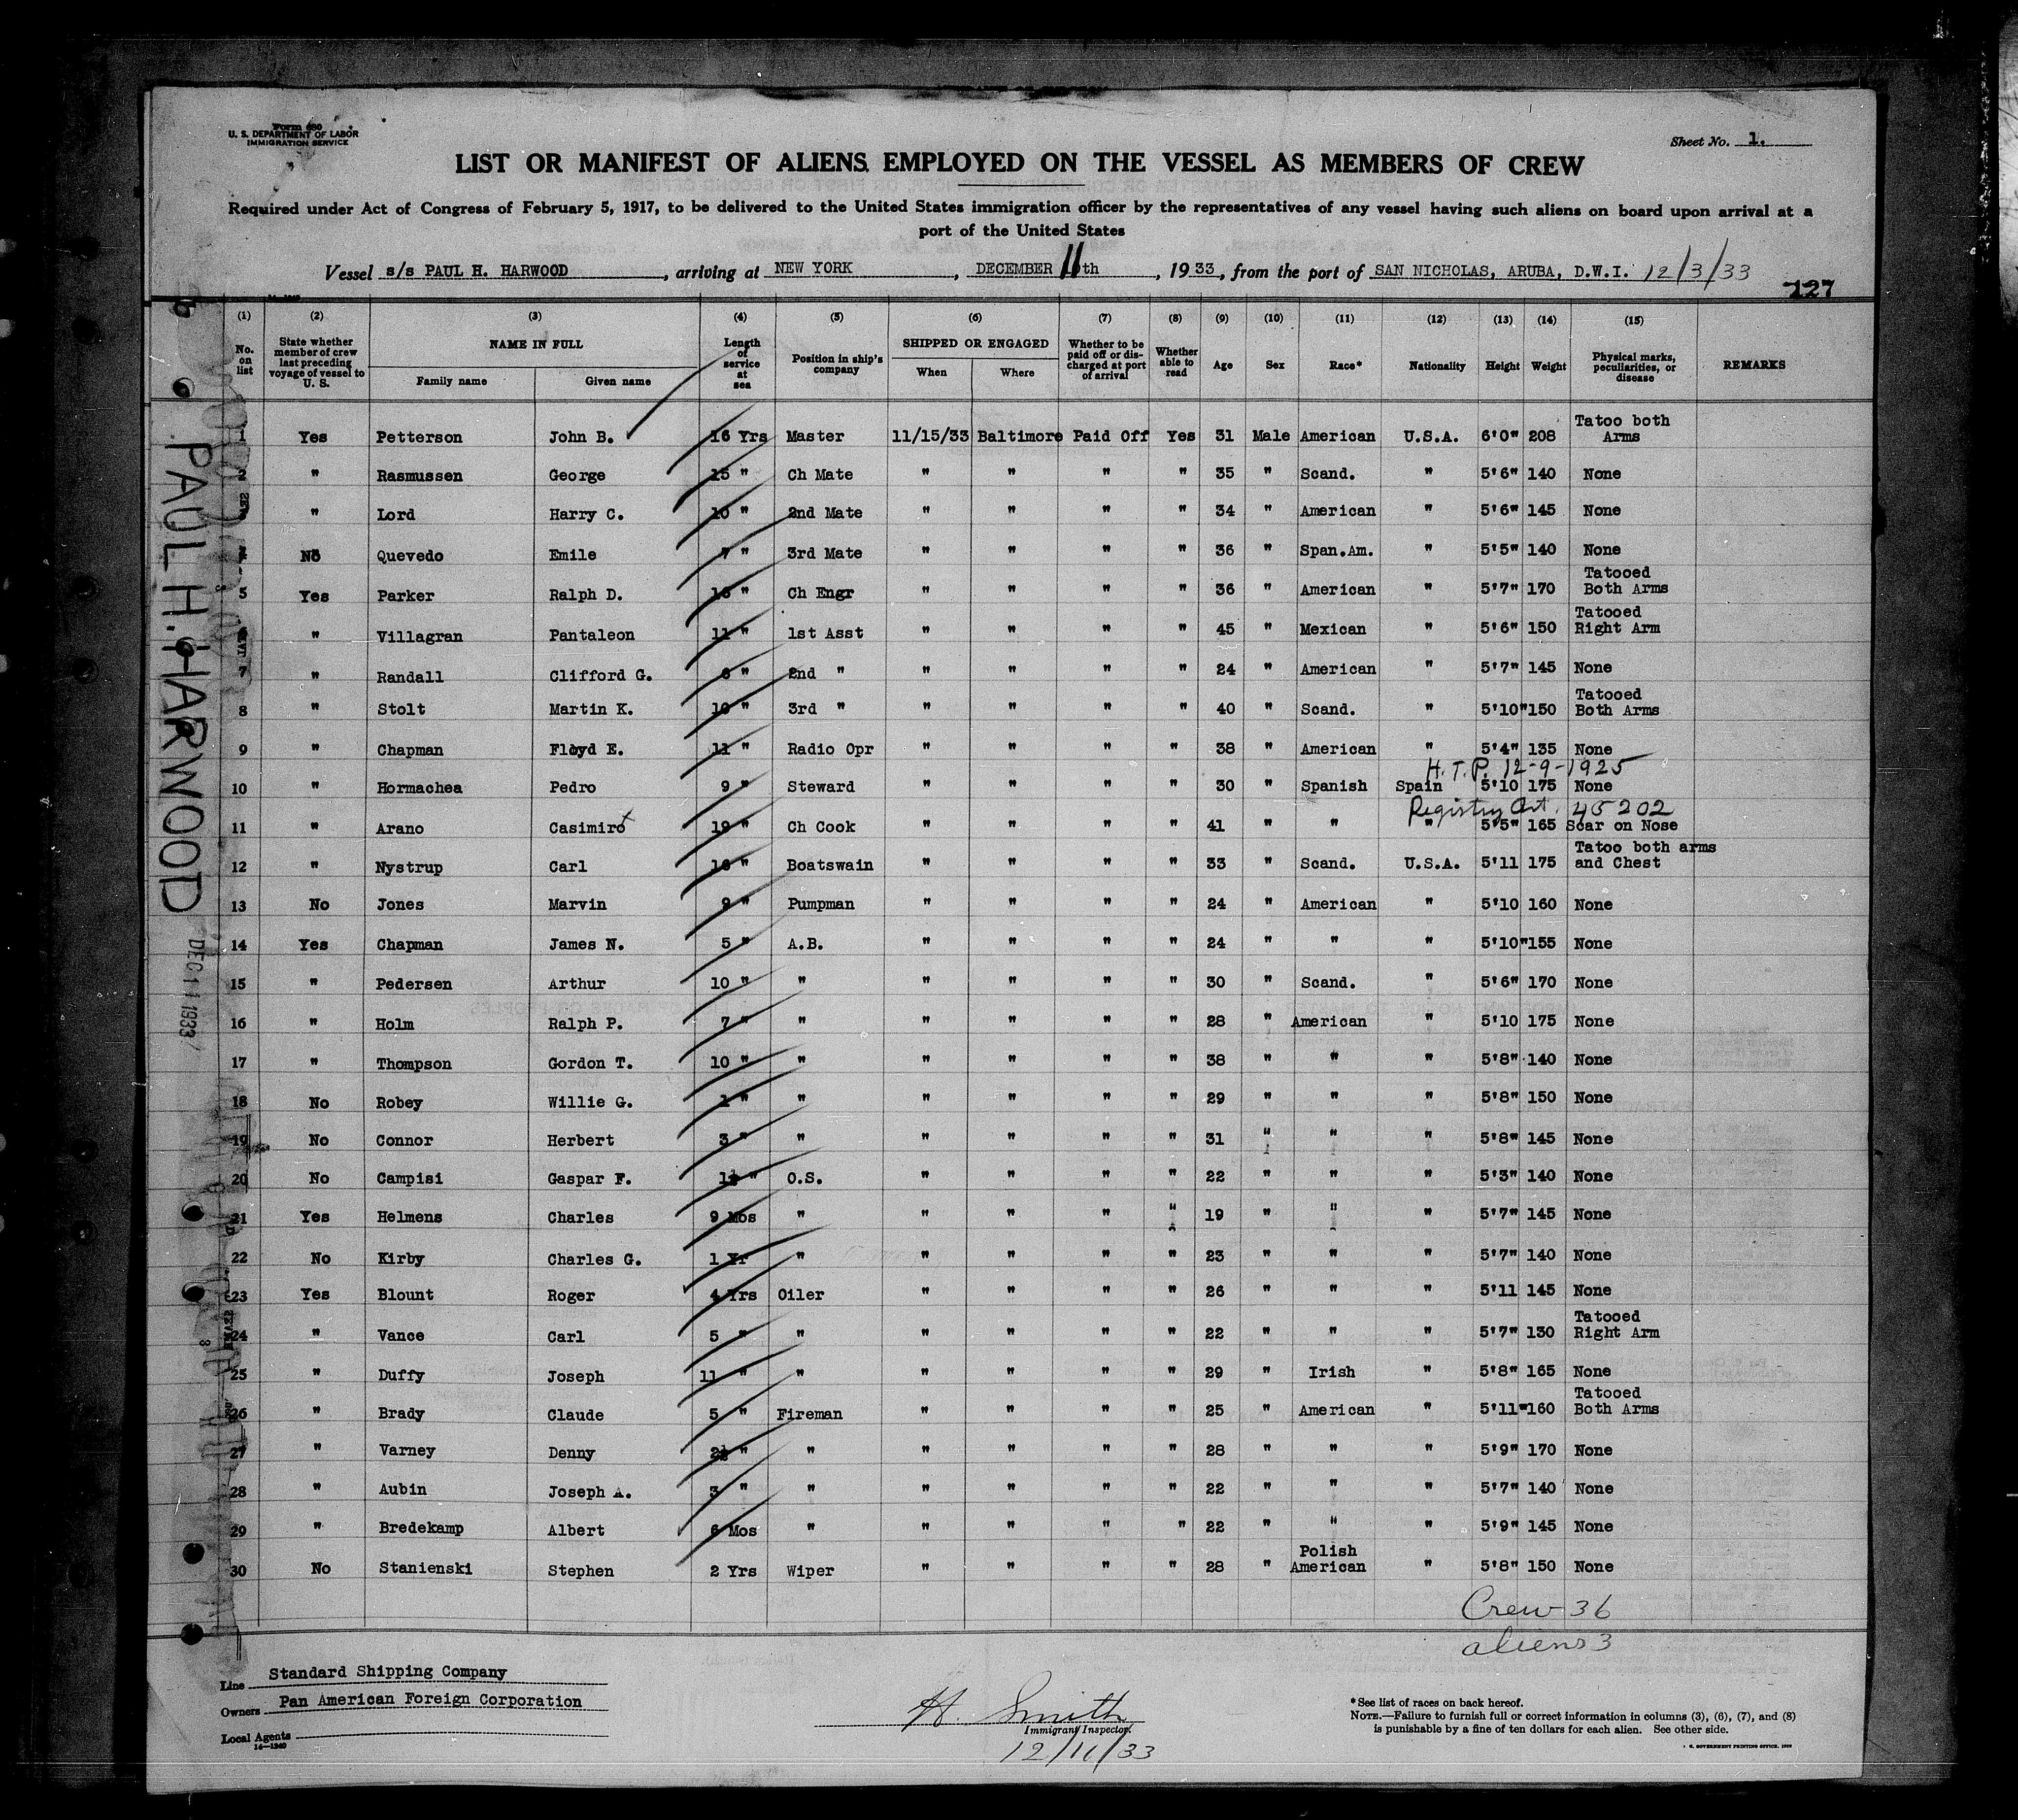 Form 680
U. S. DEPARTMENT OF LABOR
IMMIGRATION SERVICE
Sheet No. 1.
LIST OR MANIFEST OF ALIENS EMPLOYED ON THE VESSEL AS MEMBERS OF CREW
Required under Act of Congress of February 5, 1917, to be delivered to the United States immigration officer by the representatives of any vessel having such aliens on board upon arrival at a
port of the United States
Vessel s/s PAUL H. HARWOOD, arriving at NEW YORK, DECEMBER 11th, 1933, from the port of SAN NICHOLAS, ARUBA, D.W.I. 12/3/33
127
(1) (2) (3) (4) (5) (6) (7) (8) (9) (10) (11) (12) (13) (14) (15)
No. on list | State whether member of crew last preceding voyage of vessel to U. S. | NAME IN FULL Family name Given name | Length of service at sea | Position in ship's company | SHIPPED OR ENGAGED When Where | Whether to be paid off or discharged at port of arrival | Whether able to read | Age | Sex | Race* | Nationality | Height | Weight | Physical marks, peculiarities, or disease | REMARKS
1 Yes Petterson John B. 16 Yrs Master 11/15/33 Baltimore Paid Off Yes 31 Male American U.S.A. 6'0" 208 Tatoo both Arms
2 " Rasmussen George 15 " Ch Mate " " " " 35 " Scand. " 5'6" 140 None
" Lord Harry C. 10 " 2nd Mate " " " " 34 " American " 5'6" 145 None
No Quevedo Emile 7 " 3rd Mate " " " " 36 " Span.Am. " 5'5" 140 None
5 Yes Parker Ralph D. 16 " Ch Engr " " " " 36 " American " 5'7" 170 Tatooed Both Arms
" Villagran Pantaleon 11 " 1st Asst " " " " 45 " Mexican " 5'6" 150 Tatooed Right Arm
7 " Randall Clifford G. 6 " 2nd " " " " " 24 " American " 5'7" 145 None
8 " Stolt Martin K. 10 " 3rd " " " " " 40 " Scand. " 5'10" 150 Tatooed Both Arms
9 " Chapman Floyd E. 11 " Radio Opr " " " " 38 " American " 5'4" 135 None
H.T.P. 12-9-1925
10 " Hormachea Pedro 9 " Steward " " " " 30 " Spanish Spain 5'10 175 None
Registry Crt. 45202
11 " Arano Casimiro 19 " Ch Cook " " " " 41 " " " 5'5" 165 Scar on Nose
12 " Nystrup Carl 16 " Boatswain " " " " 33 " Scand. U.S.A. 5'11 175 Tatoo both arms and Chest
13 No Jones Marvin 9 " Pumpman " " " " 24 " American " 5'10 160 None
14 Yes Chapman James N. 5 " A.B. " " " " 24 " " " 5'10" 155 None
15 " Pedersen Arthur 10 " " " " " " 30 " Scand. " 5'6" 170 None
16 " Holm Ralph P. 7 " " " " " " 28 " American " 5'10 175 None
17 " Thompson Gordon T. 10 " " " " " " 38 " " " 5'8" 140 None
18 No Robey Willie G. 1 " " " " " " 29 " " " 5'8" 150 None
19 No Connor Herbert 3 " " " " " " 31 " " " 5'8" 145 None
20 No Campisi Gaspar F. 1½ " O.S. " " " " 22 " " " 5'3" 140 None
21 Yes Helmens Charles 9 Mos " " " " " 19 " " " 5'7" 145 None
22 No Kirby Charles G. 1 Yr " " " " " 23 " " " 5'7" 140 None
23 Yes Blount Roger 4 Yrs Oiler " " " " 26 " " " 5'11 145 None
24 " Vance Carl 5 " " " " " " 22 " " " 5'7" 130 Tatooed Right Arm
25 " Duffy Joseph 11 " " " " " " 29 " Irish " 5'8" 165 None
26 " Brady Claude 5 " Fireman " " " " 25 " American " 5'11" 160 Tatooed Both Arms
27 " Varney Denny 2½ " " " " " " 28 " " " 5'9" 170 None
28 " Aubin Joseph A. 3 " " " " " " 22 " " " 5'7" 140 None
29 " Bredekamp Albert 6 Mos " " " " " 22 " " " 5'9" 145 None
30 No Stanienski Stephen 2 Yrs Wiper " " " " 28 " Polish American " 5'8" 150 None
Crew 36
aliens 3
PAUL H. HARWOOD
DEC 11 1933
Line Standard Shipping Company
Owners Pan American Foreign Corporation
Local Agents
14—1240
H. Smith
Immigrant Inspector.
12/11/33
*See list of races on back hereof.
NOTE.—Failure to furnish full or correct information in columns (3), (6), (7), and (8)
is punishable by a fine of ten dollars for each alien. See other side.